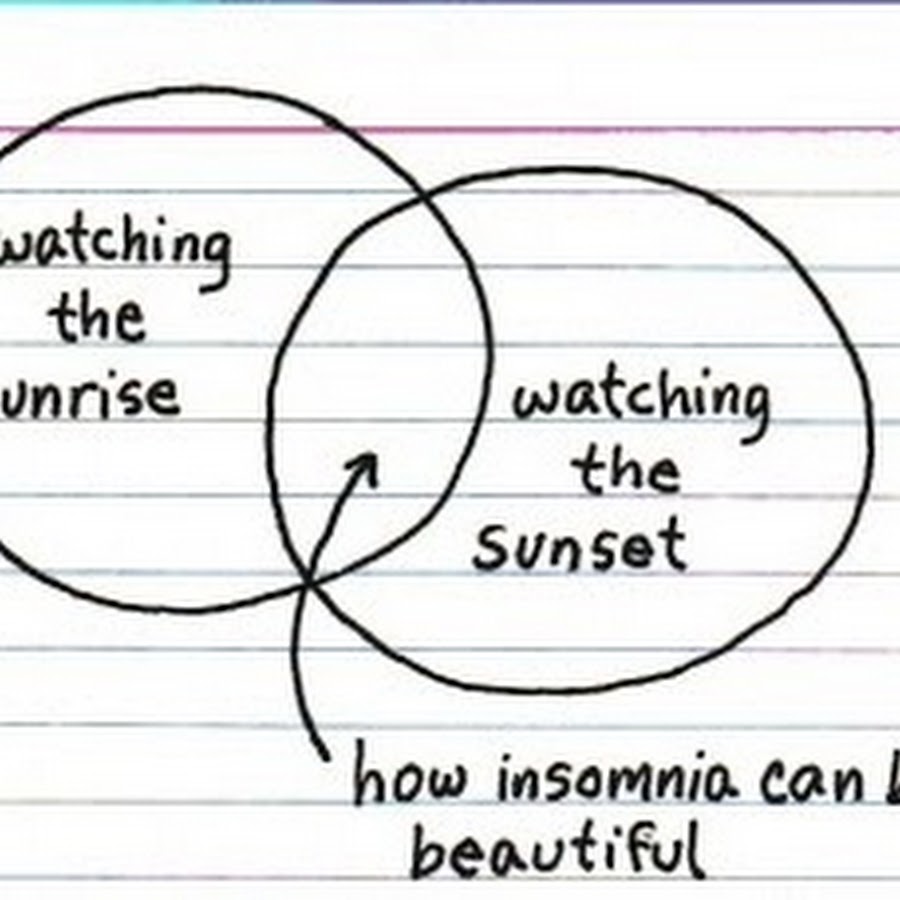 watching
the
unrise
watching
the
Sunset
how insomnia can
beautiful